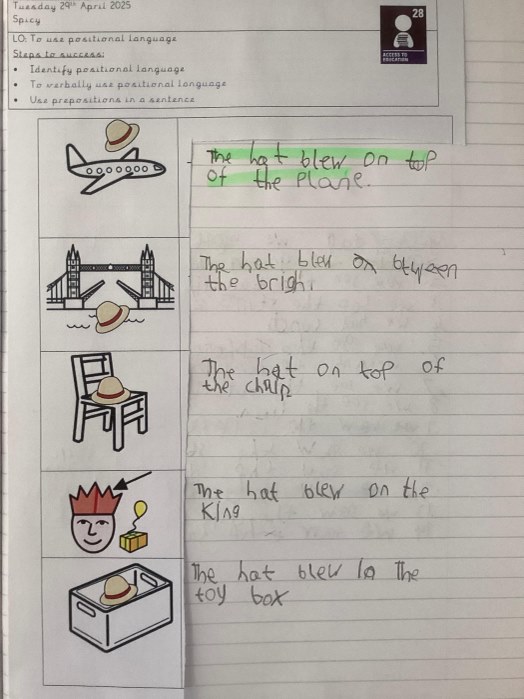 Tuesday 29th April 2025
Spicy
28
LO: To use positional language
Steps to success:
• Identify positional language
• To verbally use positional language
• Use prepositions in a sentence
ACCESS TO
EDUCATION
The hat blew on top
of the plane.
The hat blew on btween
the brigh.
The hat on top of
the chair
The hat blew on the
King
The hat blew in the
toy box